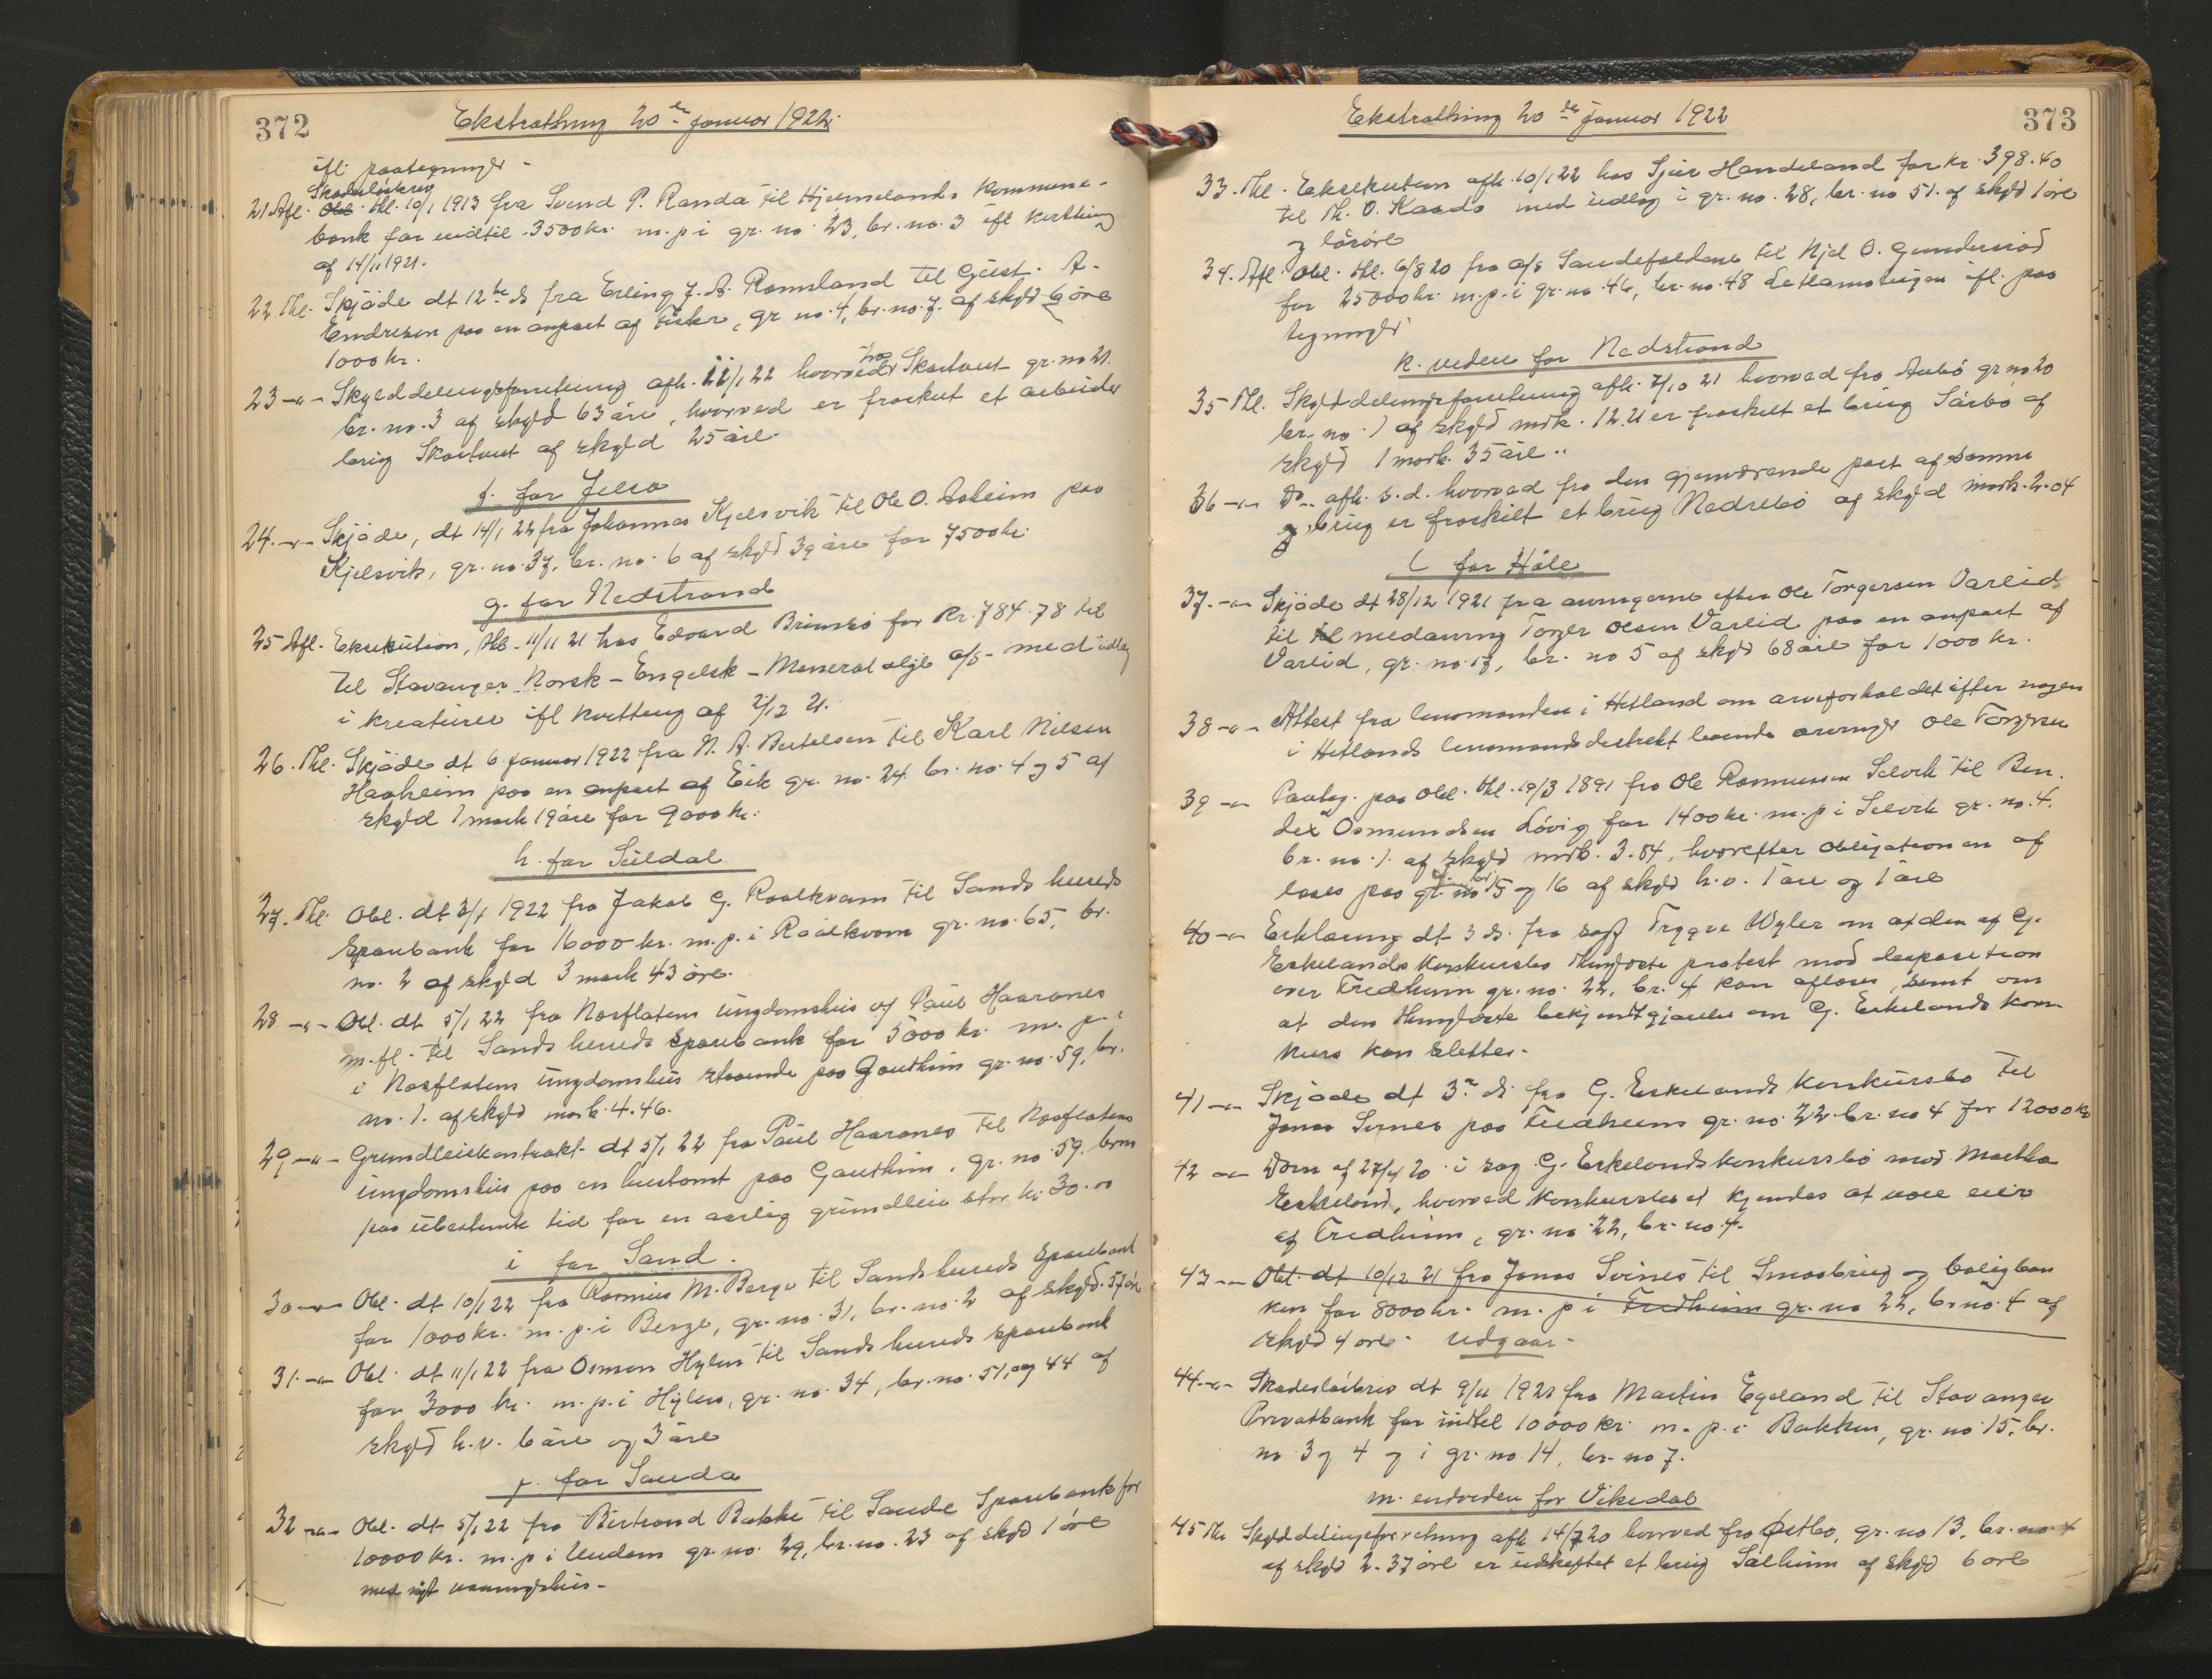 372
Ekstrathing 20de januar 1922.
ifl. paategninger -
Skadesløsbrev
21 Afl. Obl. thl. 10/1 1913 fra Svend P. Randa til Hjelmelands kommune-
bank for indtil 3500 kr. m. p. i gr. no. 23, br. no. 3 ifl kvittering
af 14/11 1921.
22 Thl. Skjøde dt 12te ds fra Erling J. A. Ramsland til Gust. A.
Endresen paa en anpart af Fister, gr no. 4, br. no. 7. af skyld 6 øre
1000 kr.
23 -"- Skylddelingsforretning afh. 11/1 22 hvorved fra Skartveit gr. no 21.
br. no. 3 af skyld 63 øre, hvorved er fraskilt et arbeider
brug Skartveit af skyld 25 øre.
f. for Jelsa
24. -"- Skjøde, dt 14/1 22 fra Johannes Kjølsvik til Ole O. Aaheim paa
Kjølsvik, gr. no. 37, br. no. 6 af skyld 39 øre for 7500 kr.
g. for Nedstrand
25 Afl. Eksekution, thl. 11/11 21 hos Edvard Brimsø for Kr. 784.78 til
til Stavanger Norsk - Engelsk - Mineralolje a/s - med udlæg
i kreaturer ifl kvittering af 2/12 21.
26. Thl. Skjøde dt 6 januar 1922 fra N. A. Bertelsen til Karl Nilsen
Haaheim paa en anpart af Eik gr. no. 24. br. no. 4 og 5 af
skyld 1 mark 19 øre for 9000 kr.
h. for Suldal
27. Thl. Obl. dt 3/1 1922 fra Jakob G. Roalkvam til Sands hereds
Sparebank for 16000 kr. m. p. i Roalkvam gr. no. 65, br.
no. 2 af skyld 3 mark 43 øre.
28 -"- Obl. dt 5/1 22 fra Nesflatens ungdomshus og Paul Haaranes
m. fl. til Sands hereds Sparebank for 5000 kr. m. p. i
i Nesflatens ungdomshus staaende paa Gautheim gr. no. 59, br.
no. 1. af skyld mark 4.46.
29 -"- Grundleiekontrakt dt 5/1 22 fra Paul Haaranes til Nesflatens
ungdomshus paa en hustomt paa Gautheim, gr. no. 59, brno
paa ubestemt tid for en aarlig grundleie stor kr 30.00
i for Sand.
30 -"- Obl. dt 10/1 22 fra Rasmus M. Berge til Sands hereds Sparebank
for 1000 kr. m. p. i Berge, gr. no. 31, br. no. 2 af skyld. 57 øre
31. -"- Obl. dt 11/1 22 fra Osmun Hylen til Sands hereds Sparebank
for 3000 kr. m. p. i Hylen, gr. no. 34, br. no. 51, og 44 af
skyld h. v. 6 øre og 3 øre
j. for Sauda
32 -"- Obl. dt 5/1 22 fra Bertrand Bakke til Saude Sparebank for
10000 kr. m. p. i gr. no. 29, br. no. 23 af skyld 1 øre
med nyt vaaningshus -
Ekstrathing 20de januar 1922
373
33. Thl. Eksekution afh. 10/1 22 hos Sjur Handeland for kr. 398.40
til Th. O. Kaada med udlæg i gr. no. 28, br. no 51. af skyld 1 øre
og løsøre
34. Afl. Obl. thl. 6/8 20 fra a/s Saudefaldene til Njål O. Gundersrød
for 25000 kr. m. p. i gr. no. 46, br. no. 48 ifl. paa
tegninger
k. videre for Nedstrand
35 Thl. Skylddelingsforretning afh. 7/10 21 hvorved fra Aubø gr no 20
br. no. 1 af skyld mrk. 12.21 er fraskilt et brug Sørbø af
skyld 1 mark. 35 øre..
36 -"- Do. afh. s. d. hvorved fra den gjenværende part af samme
brug er fraskilt et brug Nedrebø af skyld mark. 2.04
l for Høle
37. -"- Skjøde dt 28/12 1921 fra arvingerne efter Ole Torgersen Vareid
til medarving Torger Olsen Vareid paa en anpart af
Vareid, gr. no. 17, br. no 5 af skyld 68 øre for 1000 kr.
38 -"- Attest fra lensmanden i Hetland om arveforholdet efter nogen
i Hetlands lensmandsdistrikt boende arvinger Ole Torgersen
39 -"- Paateg. paa obl. thl. 19/3 1891 fra Ole Rasmussen Selvik til Ben.
dix Osmundsen Løvig for 1400 kr. m. p. i Selvik gr. no. 4.
br. no. 1. af skyld mrk. 3.84, hvorefter obligationen af
løses paa gr. no 15 og 16 af skyld h. v. 1 øre og 1 øre
40 -"- Erklæring dt 3 ds. fra sagf Trygve Wyler om at den af G.
Eskelands konkursbo thinglyste protest mod desposition
over Fredheim gr. no. 22, br. 4 kan afløses, samt om
at den thinglyste bekjendtgjørelse om G. Eskelands kon-
kurs kan slettes.
41 -"- Skjøde dt 3de ds. fra G. Eskelands konkursbo til
Jonas Svines paa Fredheim gr. no. 22. br. no 4 for 12000 kr
42 -"- Dom af 27/4 20 i sag G. Eskelands konkursbo mod Martha
Eskeland, hvorved konkursboet kjendes at være eier
af Fredheim, gr. no 22, br. no. 4.
43 -"- Obl. dt 10/12 21 fra Jonas Svines til Smaabrug og boligban
ken for 8000 kr. m. p. i Fredheim gr. no 22, br. no. 4 af
skyld 4 øre. Udgaar -
44. -"- Skadesløsbrev dt 9/11 1921 fra Martin Egeland til Stavanger
Privatbank for indtil 10000 kr. m. p. i Bakken, gr. no 15, br.
no. 3 og 4 og i gr. no 14, br. no 7.
m. endvidere for Vikedal
45 Thl Skylddelingsforretning afh 14/7 20 hvorved fra Østbø, gr. no 13, br. no 4
af skyld 2.37 øre er udskiftet et brug Solheim af skyld 6 øre